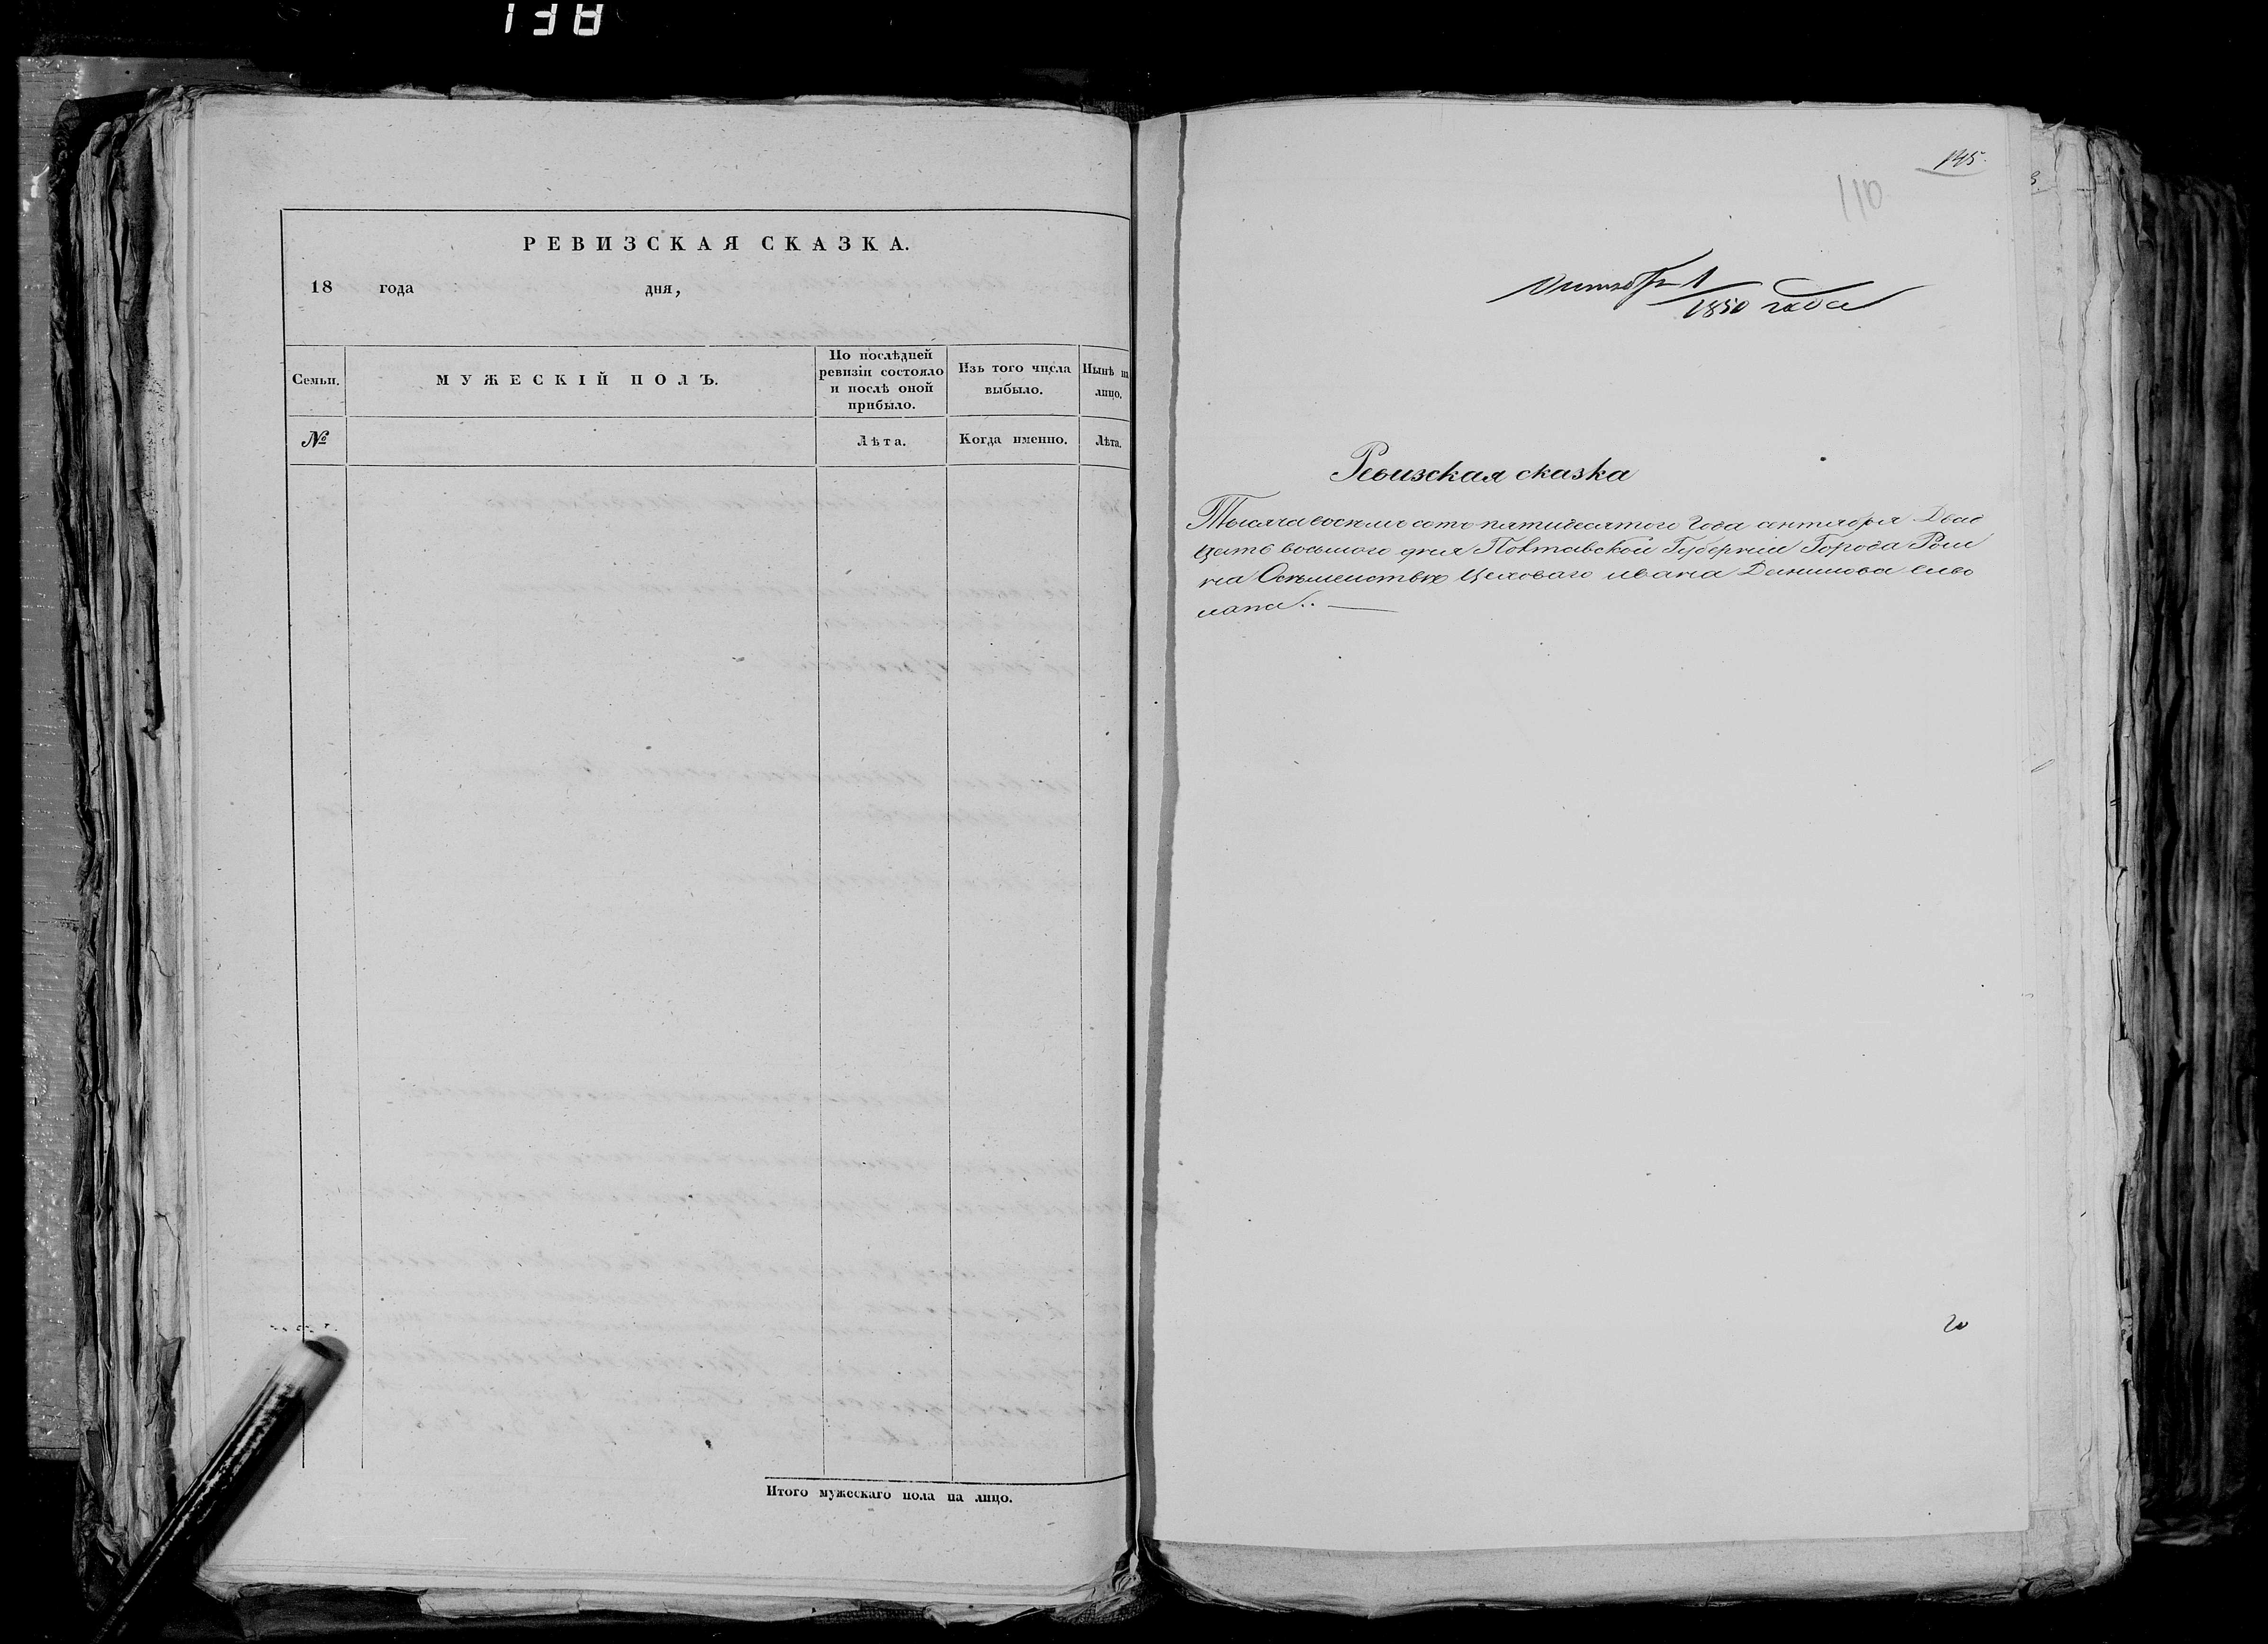 138
РЕВИЗСКАЯ СКАЗКА.
18 года дня,
Семьи.
МУЖЕСКІЙ ПОЛЪ.
По послѣдней ревизіи состояло и послѣ оной прибыло.
Изъ того числа выбыло.
Нынѣ на лицо.
№
Лѣта.
Когда именно.
Лѣта.
Итого мужескаго пола на лицо.
145.
110
Октября 1
1850 года
Ревизская сказка
Тысяча восемь сотъ пятидесятого Года сентября Двад
цать восьмого дня Полтавской Губерніи Города Ром
на Осемействѣ Цеховаго ивана Данилова